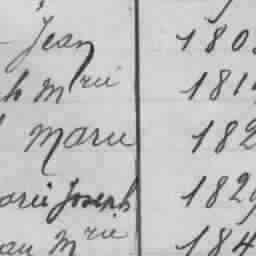 Jean 180
h Mrie 181
Marie 182
arie Joseph 182
an Mrie 184